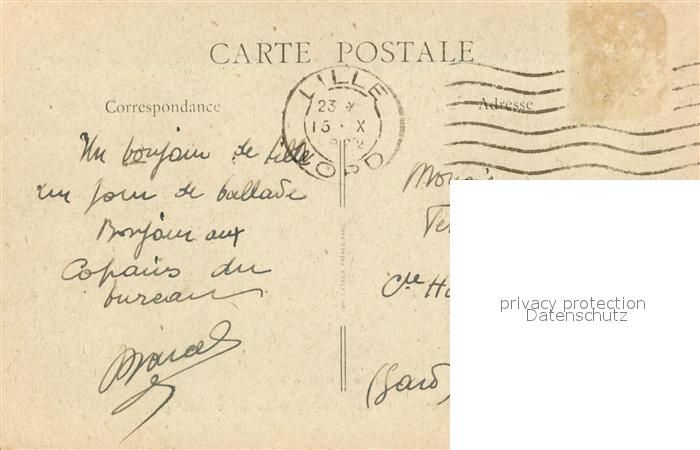 CARTE POSTALE
LILLE
23 *
15 · X
NORD
Correspondance
Adresse
Un bonjour de Lille
un jour de ballade
Bonjour aux
Copains du
bureau
Marcel
Cie
(Gard)
privacy protection
Datenschutz